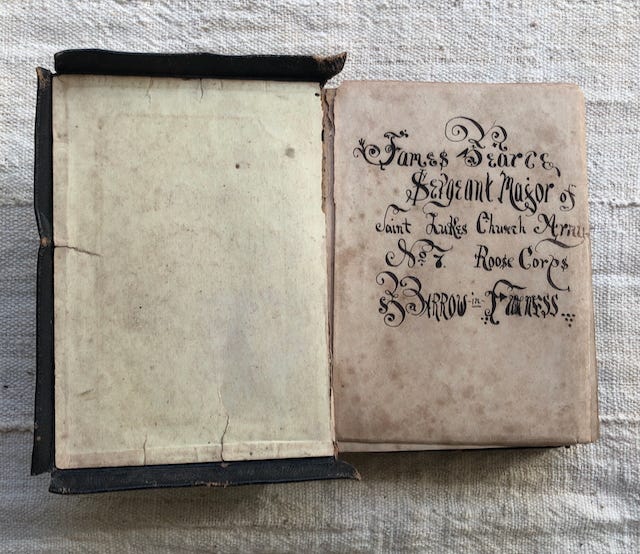 James Pearce
Sergeant Major of
Saint Lukes Church Army
No 7. Roose Corps
Barrow-in-Furness